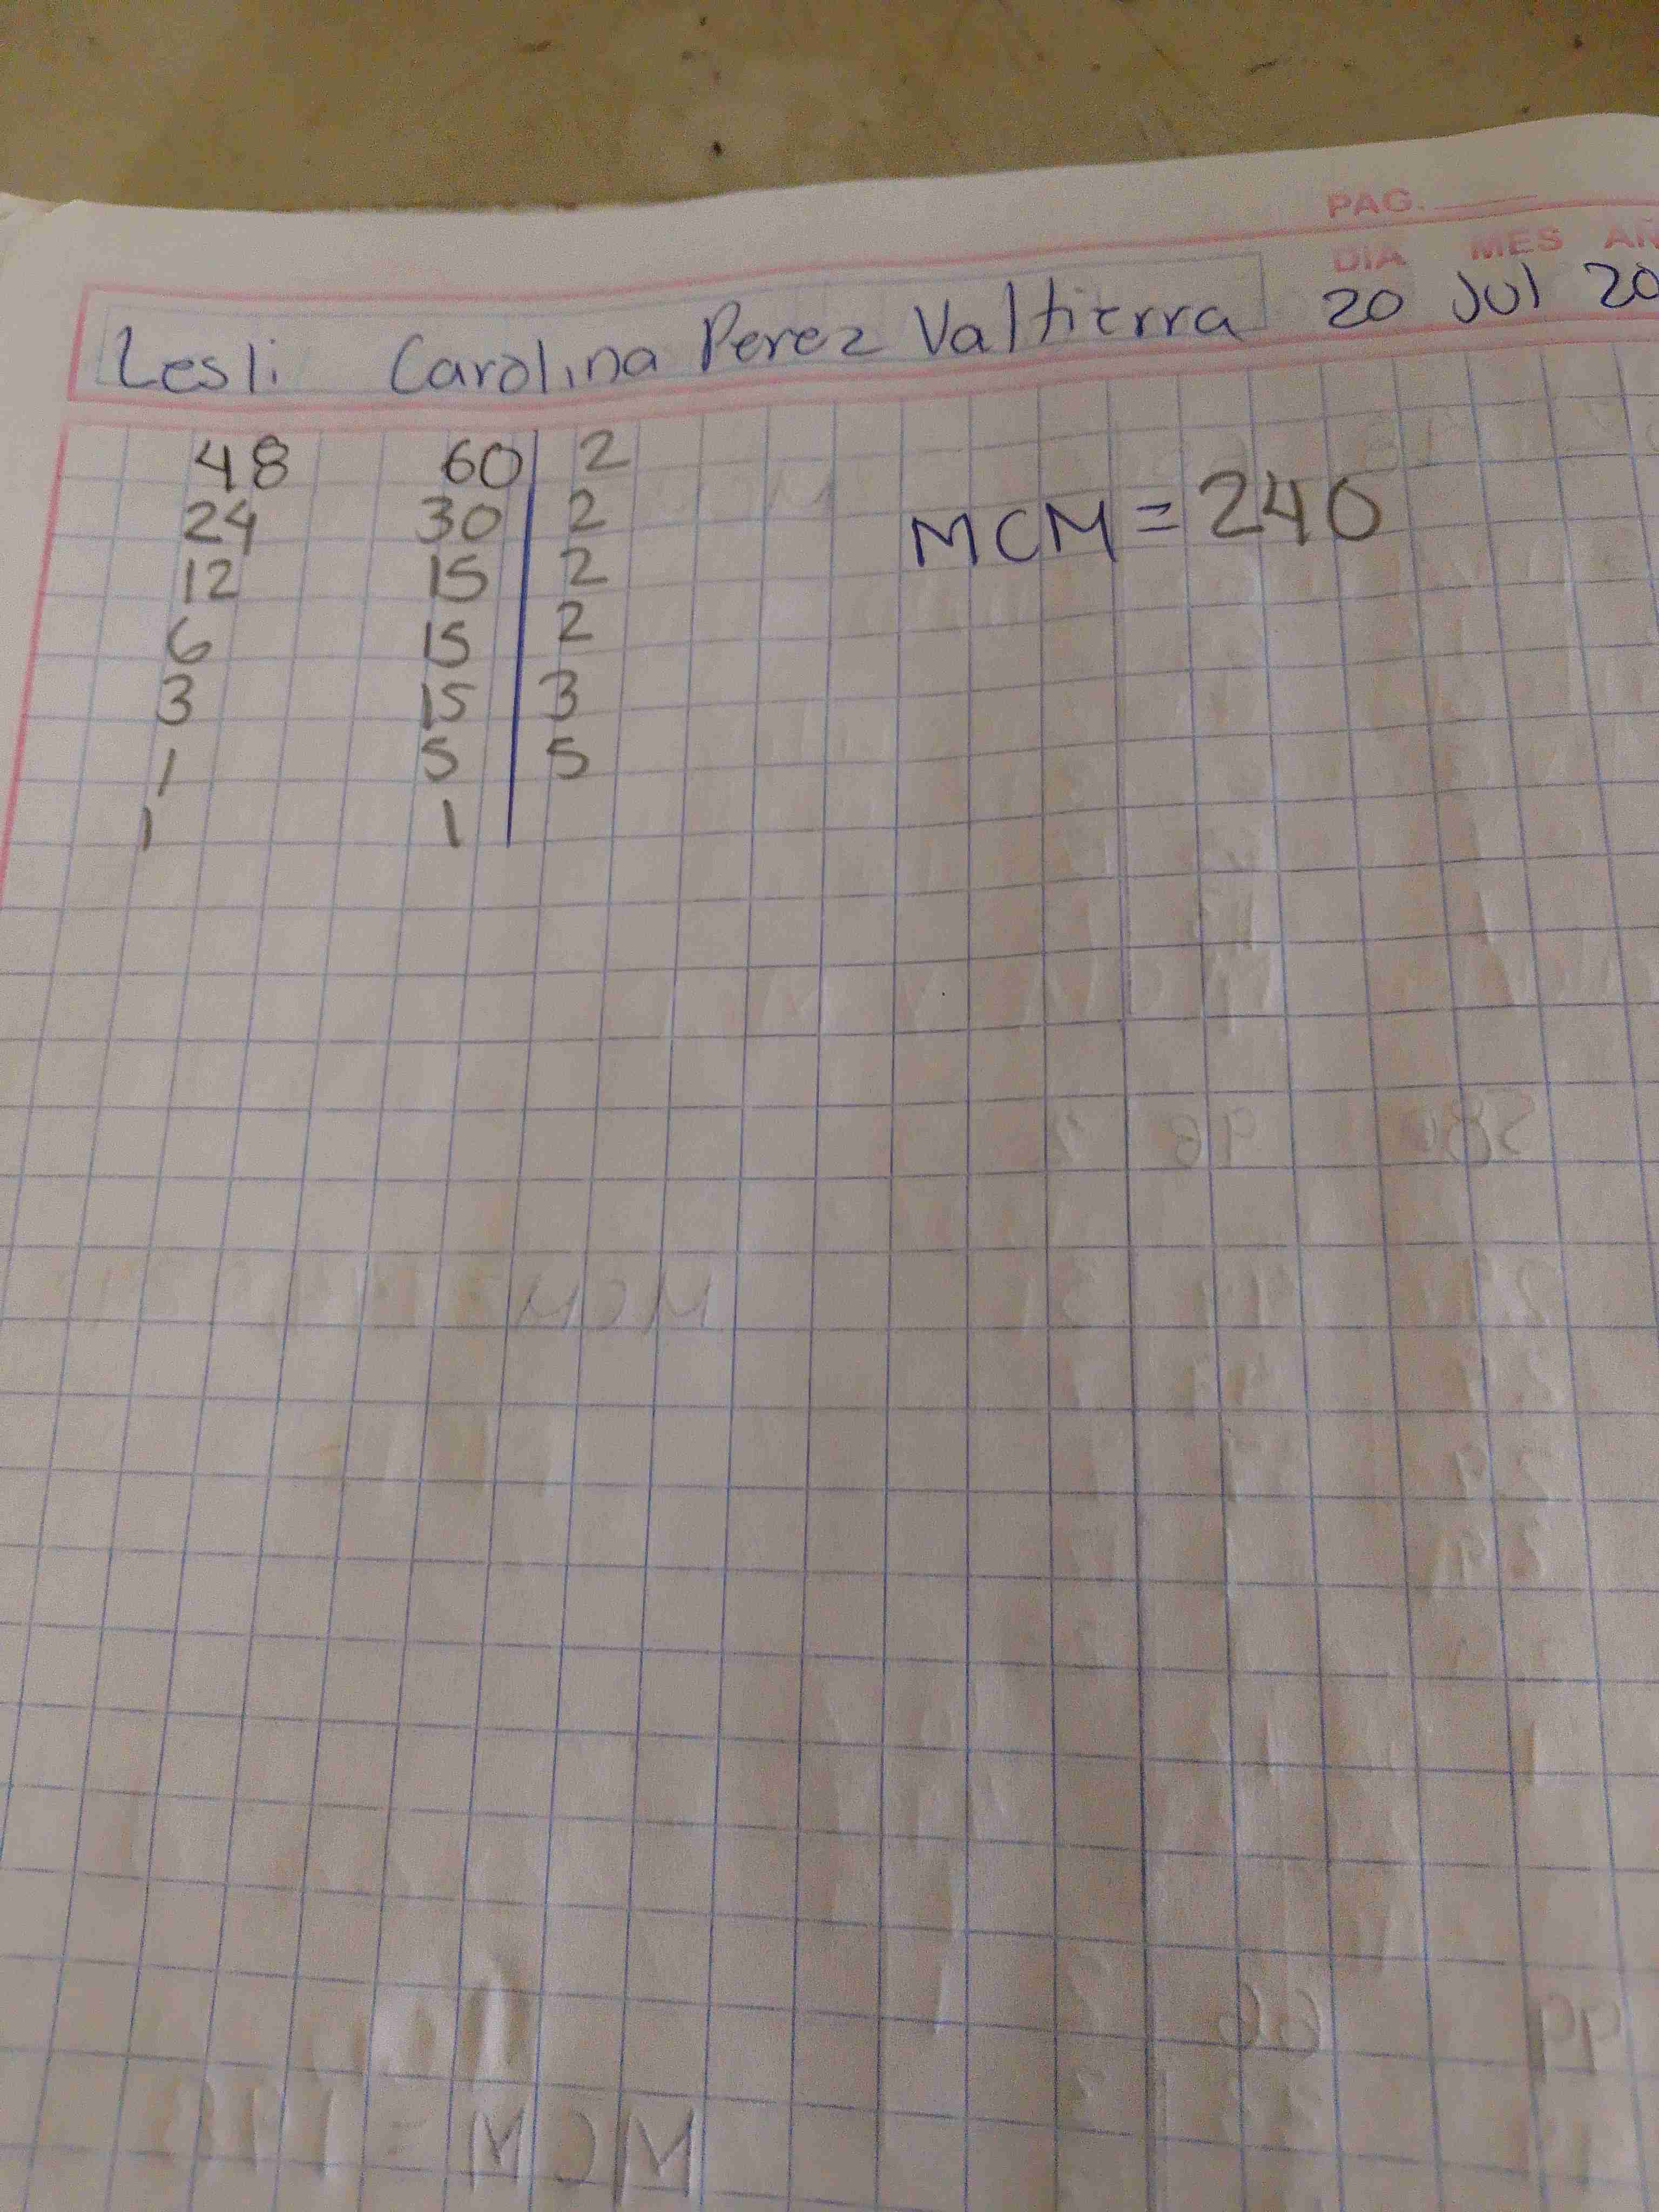 PAG.
DIA MES AÑ
Lesli Carolina Perez Valtierra 20 Jul 20
48 60 2
24 30 2
12 15 2
6 15 2
3 15 3
1 5 5
1 1
MCM = 240